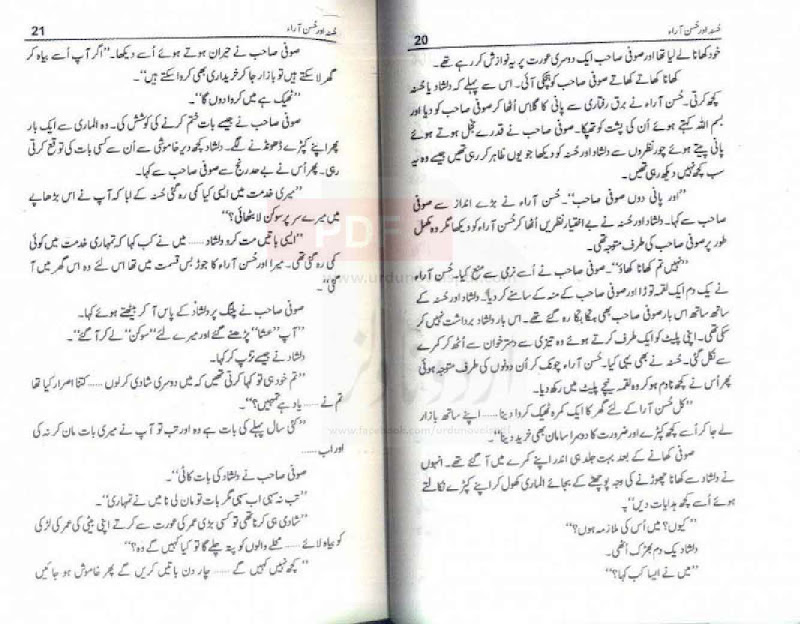 20
حُسنہ اور حُسن آراء
خود کھانا لے لیا تھا اور صوفی صاحب ایک دوسری عورت پر یہ نوازش کر رہے تھے۔
کھانا کھاتے کھاتے صوفی صاحب کو ہچکی آئی۔ اس سے پہلے کہ دلشاد یا حُسنہ
کچھ کرتی۔ حُسن آراء نے برق رفتاری سے پانی کا گلاس اُٹھا کر صوفی صاحب کو دیا اور
بسم اللہ کہتے ہوئے اُن کی پشت کو تھپکا۔ صوفی صاحب نے قدرے خجل ہوتے ہوئے
پانی پیتے ہوئے چور نظروں سے دلشاد اور حُسنہ کو دیکھا جو یوں ظاہر کر رہی تھیں جیسے وہ یہ
سب کچھ نہیں دیکھ رہی تھیں۔
”اور پانی دوں صوفی صاحب“۔ حُسن آراء نے بڑے انداز سے صوفی
صاحب سے کہا۔ دلشاد اور حُسنہ نے بے اختیار نظریں اُٹھا کر حُسن آراء کو دیکھا مگر وہ مکمل
طور پر صوفی صاحب کی طرف متوجہ تھی۔
”نہیں تم کھانا کھاؤ“۔ صوفی صاحب نے اُسے نرمی سے منع کیا۔ حُسن آراء
نے یک دم ایک لقمہ توڑا اور صوفی صاحب کے منہ کے سامنے کر دیا۔ دلشاد اور حُسنہ کے
ساتھ ساتھ اس بار صوفی صاحب بھی ہکا بکا رہ گئے تھے۔ اس بار دلشاد برداشت نہیں کر
سکی تھی۔ اپنی پلیٹ کو ایک طرف کرتے ہوئے وہ تیزی سے دسترخوان سے اُٹھ کر کمرے
سے نکل گئی۔ حُسنہ نے بھی یہی کیا۔ حُسن آراء چونک کر اُن دونوں کی طرف متوجہ ہوئی
پھر اُس نے کچھ نادم ہو کر وہ لقمہ نیچے پلیٹ میں رکھ دیا۔
”کل حُسن آراء کے لئے گھر کا ایک کمرہ ٹھیک کروا دینا..... اپنے ساتھ بازار
لے جا کر اُسے کچھ کپڑے اور ضرورت کا دوسرا سامان بھی خرید دینا“۔
صوفی کھانے کے بعد بہت جلد ہی اندر اپنے کمرے میں آ گئے تھے۔ انہوں
نے دلشاد سے کھانا چھوڑنے کی وجہ پوچھنے کے بجائے الماری کھول کر اپنے کپڑے نکالتے
ہوئے اُسے کچھ ہدایات دیں۔
”کیوں؟ میں اُس کی ملازمہ ہوں؟“
دلشاد یک دم بھڑک اُٹھی۔
”میں نے ایسا کب کہا؟“
21
حُسنہ اور حُسن آراء
صوفی صاحب نے حیران ہوتے ہوئے اُسے دیکھا۔ ”اگر آپ اُسے بیاہ کر
گھر لا سکتے ہیں تو بازار جا کر خریداری بھی کروا سکتے ہیں“۔
”ٹھیک ہے میں کروا دوں گا“۔
صوفی صاحب نے جیسے بات ختم کرنے کی کوشش کی۔ وہ الماری سے ایک بار
پھر اپنے کپڑے ڈھونڈنے لگے۔ دلشاد کچھ دیر خاموشی سے اُن سے کسی بات کی توقع کرتی
رہی۔ پھر اُس نے بے حد رنج سے صوفی صاحب سے کہا۔
”میری خدمت میں ایسی کیا کمی رہ گئی حُسنہ کے ابا کہ آپ نے اس بڑھاپے
میں میرے سر پر سوکن لا بٹھائی؟“
”ایسی باتیں مت کرو دلشاد..... میں نے کب کہا کہ تمہاری خدمت میں کوئی
کمی رہ گئی تھی۔ میرا اور حُسن آراء کا جوڑ بس قسمت میں تھا اس لئے وہ اس گھر میں آ
گئی“۔
صوفی صاحب نے پلنگ پر دلشاد کے پاس آ کر بیٹھتے ہوئے کہا۔
”آپ ”عشا“ پڑھنے گئے اور میرے لئے ”سوکن“ لے کر آ گئے“۔
دلشاد نے جیسے تڑپ کر کہا۔
”تم خود ہی تو کہا کرتی تھیں کہ میں دوسری شادی کر لوں..... کتنا اصرار کیا تھا
تم نے..... یاد ہے تمہیں؟“۔
”کئی سال پہلے کی بات ہے وہ اور تب تو آپ نے میری بات مان کر نہ کی
اور اب.....
صوفی صاحب نے دلشاد کی بات کاٹی۔
”تب نہ سہی اب سہی مگر بات تو مان لی نا میں نے تمہاری“۔
”شادی ہی کرنا تھی تو کسی بڑی عمر کی عورت سے کرتے اپنی بیٹی کی عمر کی لڑکی
کو بیاہ لائے..... محلے والوں کو پتہ چلے گا تو کیا کہیں گے وہ؟“
”کچھ نہیں کہیں گے..... چار دن باتیں کریں گے پھر خاموش ہو جائیں
PDF